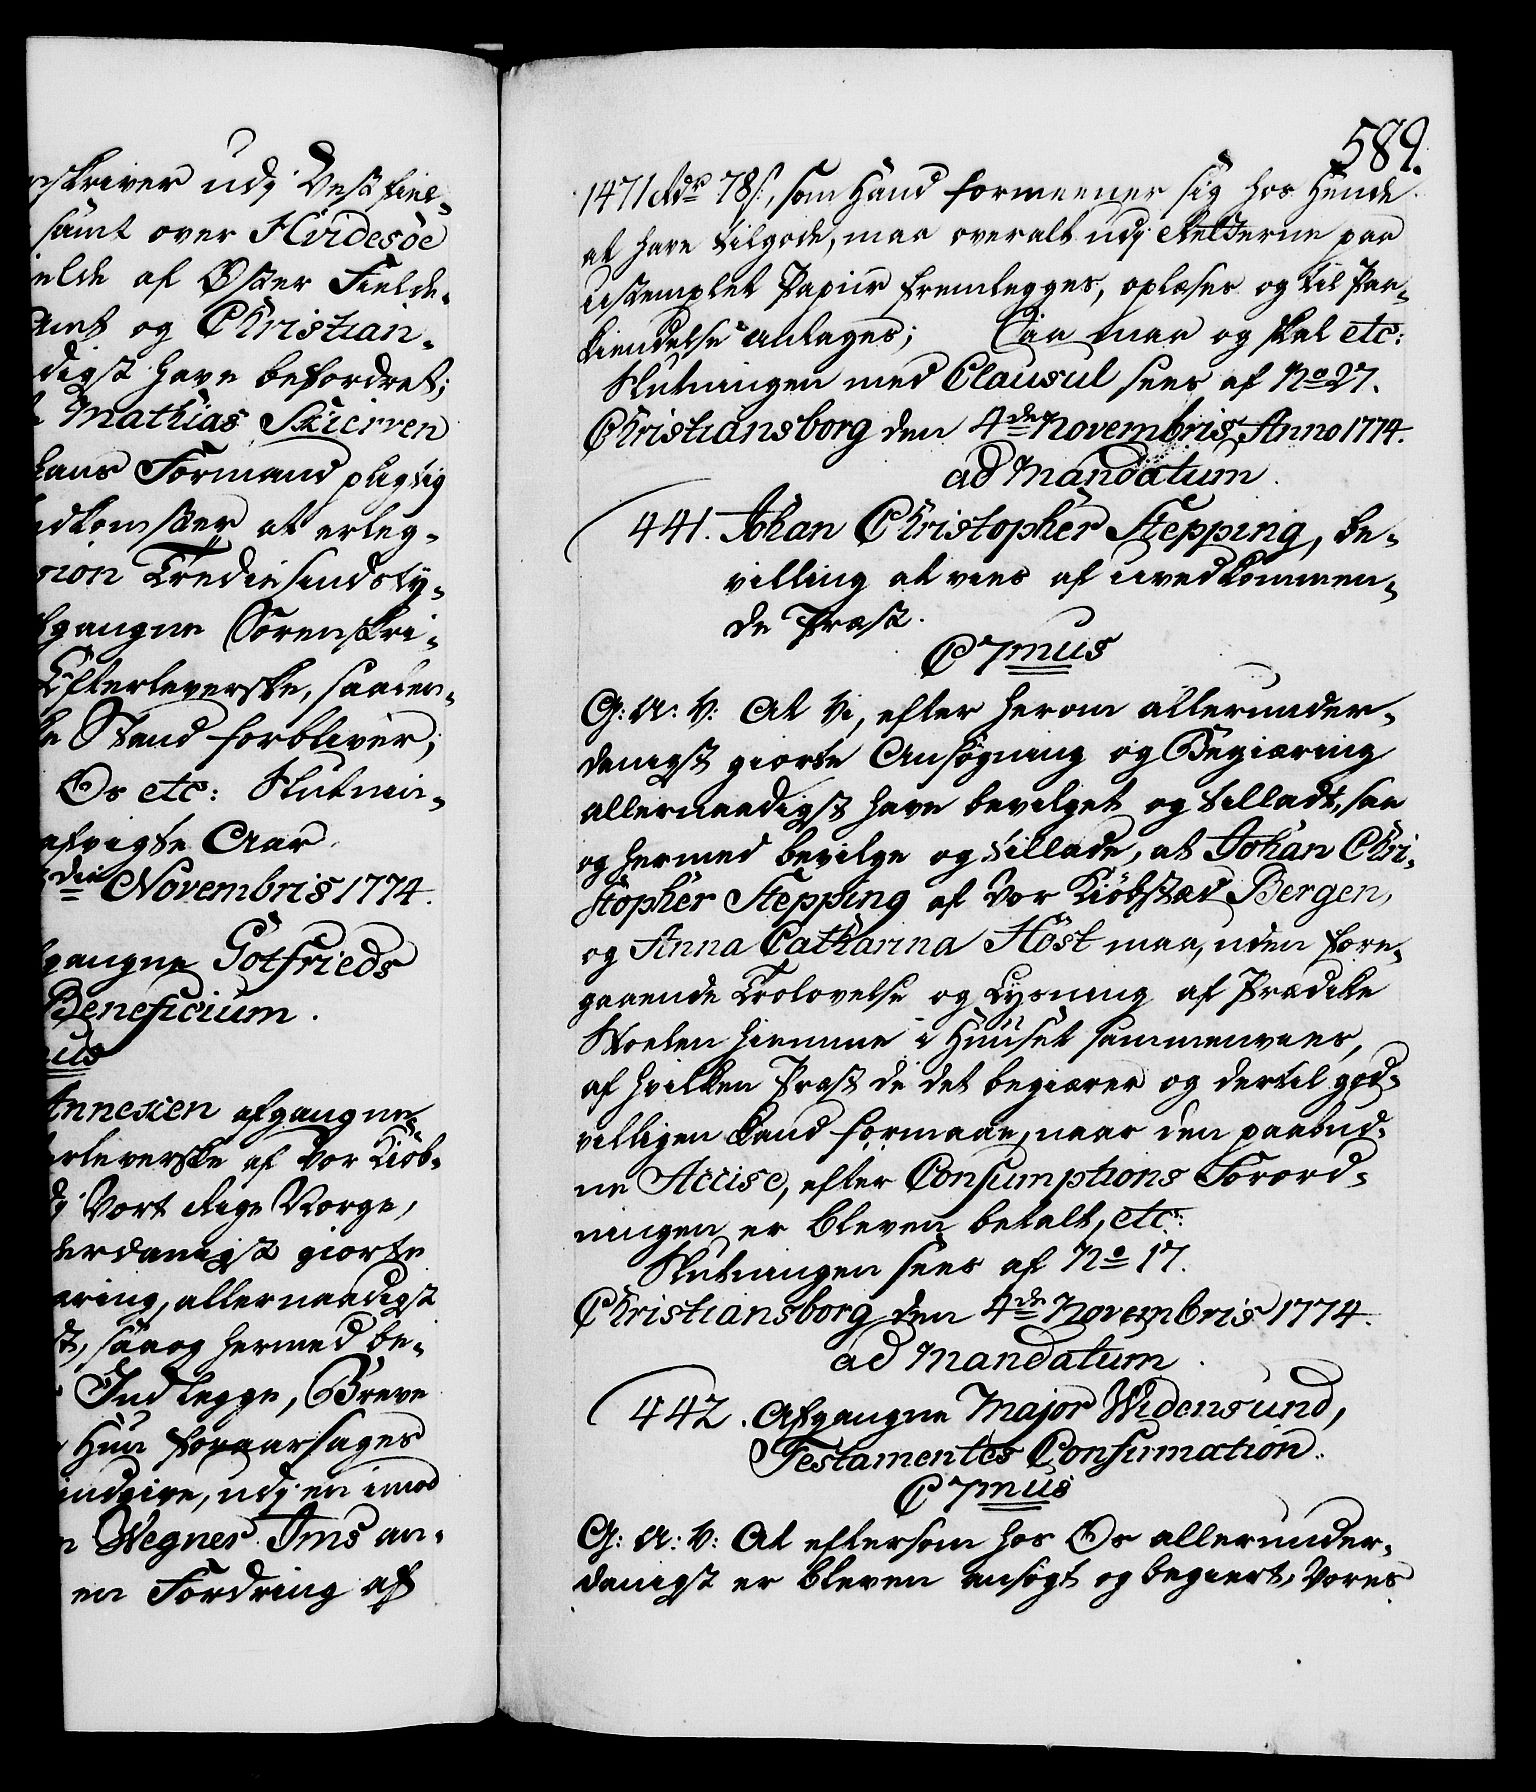 nskriver udj Vestfiel-
samt over Hvidesöe
ielde af Öster Fielde-
Amt og Christian-
digst have befordret;
Mathias Skierven
hans Formand pligtig
ndkomster at erleg-
sion Trediesindsty-
fgangne Sorenskri-
Efterleverske, saalen-
ke Stand forbliver;
Os etc: Slutnin-
afvigte Aar.
die Novembris 1774.
gangne Götfrieds
Beneficium.
us
Annexien afgangne
erleverske af Vor Kiöb-
dj Vort Rige Norge,
derdanigst giorte
æring, allernaadigst
dt, saa og hermed be-
Indlegge, Breve
Hun foraarsages
indgive, udj en imod
n Wegner Ims an-
en Fordring af
589.
1471 Rdr 78 s, som Hand formeener sig hos Hende
at have tilgode, maa overalt udj Retterne paa
ustemplet Papiir fremlegges, oplæses og til Paa-
kiendelse antages; Saa maa og skal etc:
Slutningen med Clausul sees af No 27.
Christiansborg den 4de Novembris Anno 1774.
ad Mandatum.
441. Johan Christopher Stepping, be-
villing at vies af uvedkommen-
de Præst.
C 7mus
G: A: V: At Vi, efter herom allerunder-
danigst giorte Ansøgning og Begiæring
allernaadigst have bevilget og tilladt, saa
og hermed bevilge og tillade, at Johan Chri-
stopher Stepping af Vor Kiöbstæd Bergen,
og Anna Catharina Höst maa, uden fore-
gaaende Trolovelse og Lysning af Prædike
Stoelen hiemme i Huuset sammenvies,
af hvilken Præst de det begiærer og dertil god-
villigen kand formaae, naar den paabud-
ne Accise, efter Consumptions Forord-
ningen er bleven betalt, etc:
Slutningen sees af No 17.
Christiansborg den 4de Novembris 1774.
ad Mandatum.
442. Afgangne Major Widensund,
Testamentes Confirmation.
C 7mus
G: A: V: At eftersom hos Os allerunder-
danigst er bleven ansøgt og begiert, Vores